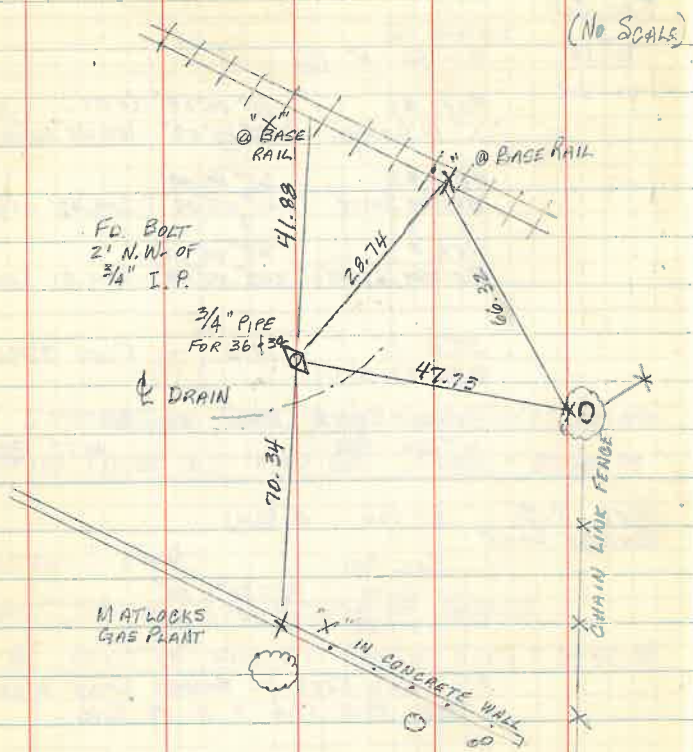 (No SCALE)
"X"
@ BASE
RAIL
"X"
@ BASE RAIL
41.88
28.74
66.32
FD. BOLT
2' N.W. OF
3/4" I.P.
3/4" PIPE
FOR 36
47.73
℄ DRAIN
70.34
CHAIN LINK FENCE
MATLOCKS
GAS PLANT
"X" IN CONCRETE WALL